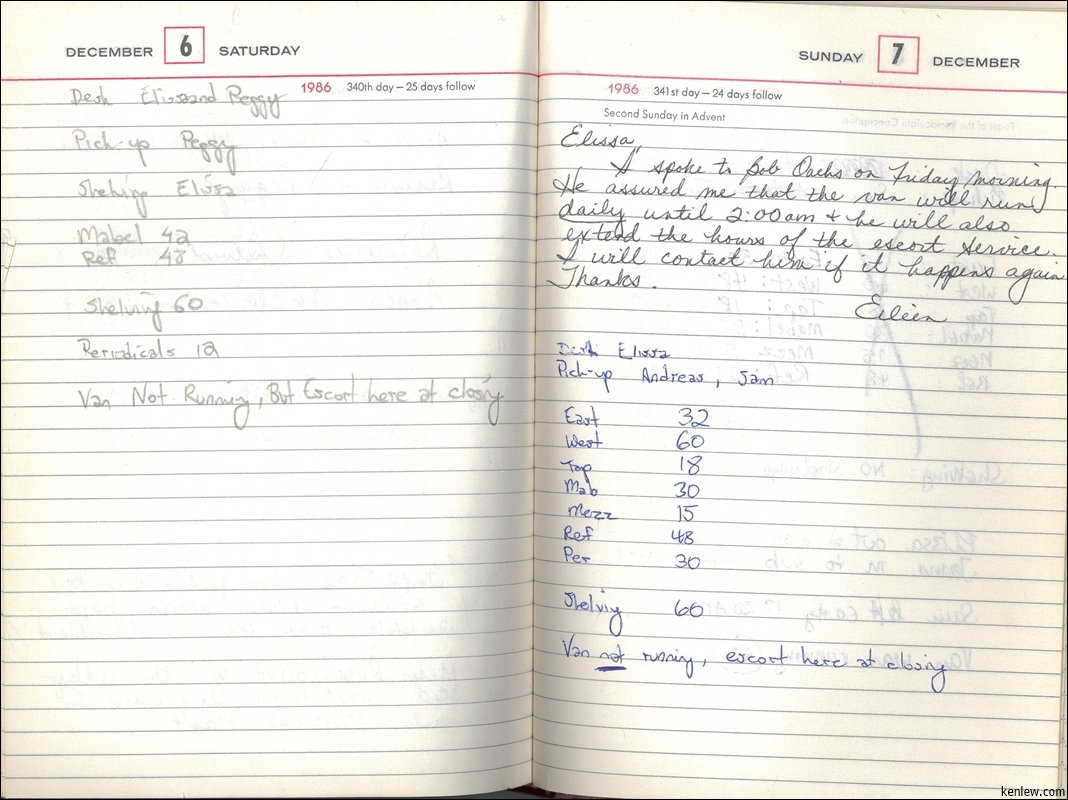 DECEMBER 6 SATURDAY
1986 340th day — 25 days follow
Desk Elissa and Peggy
Pick-up Peggy
Shelving Elissa
Mabel 42
Ref 48
Shelving 60
Periodicals 12
Van Not Running, But Escort here at closing
SUNDAY 7 DECEMBER
1986 341st day — 24 days follow
Second Sunday in Advent
Elissa,
I spoke to Bob Oachs on Friday morning.
He assured me that the van will run
daily until 2:00am + he will also
extend the hours of the escort service.
I will contact him if it happens again
Thanks.
Eileen
Desk Elissa
Pick-up Andreas, Sam
East 32
West 60
Top 18
Mab 30
Mezz 15
Ref 48
Per 30
Shelving 60
Van not running, escort here at closing
kenlew.com